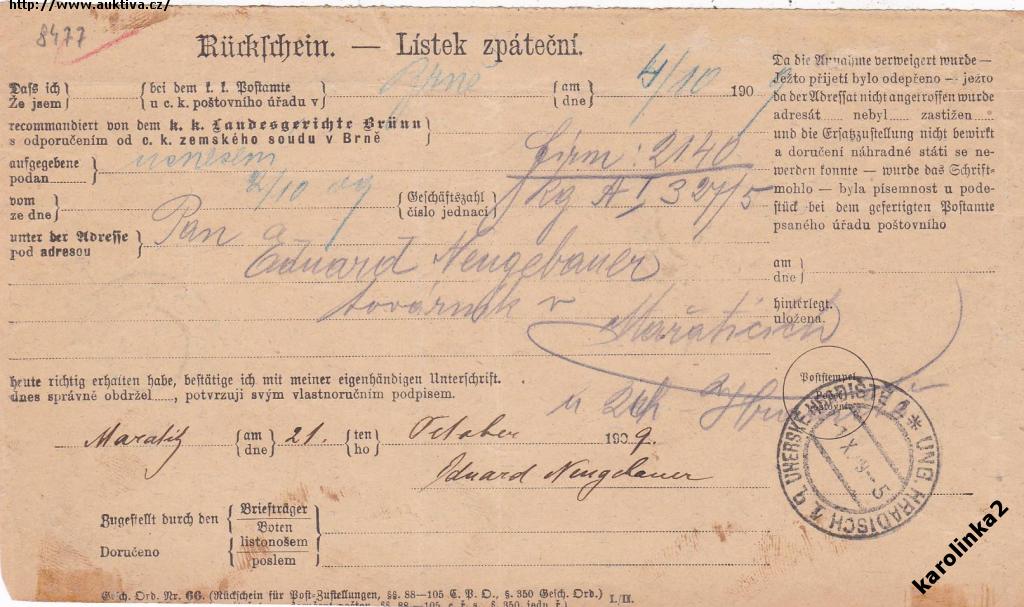 http://www.auktiva.cz/
8477
Rückschein. — Lístek zpáteční.
Dass ich bei dem k. k. Postamte Brně am 4/10 1909
Že jsem u c. k. poštovního úřadu v dne
recommandiert von dem k. k. Landesgerichte Brünn
s odporučením od c. k. zemského soudu v Brně
aufgegebene usnesení firm: 2140
podan
vom 2/10 09 Geschäftszahl Rg A I 327/5
ze dne číslo jednací
unter der Adresse Pan
pod adresou
Eduard Neugebauer
továrník v
Mařaticích
u Uh. Hradiště
heute richtig erhalten habe, bestätige ich mit meiner eigenhändigen Unterschrift.
dnes správně obdržel, potvrzuji svým vlastnoručním podpisem.
Maratitz am 21. ten October 1909.
dne ho
Eduard Neugebauer
Zugestellt durch den Briefträger
Boten
Doručeno listonošem
poslem
Gesch. Ord. Nr. 66. (Rückschein für Post-Zustellungen, §§. 88—105 C. P. O., §. 350 Gesch. Ord.)
Da die Annahme verweigert wurde —
Ježto přijetí bylo odepřeno — ježto
da der Adressat nicht angetroffen wurde
adresát nebyl zastižen
und die Ersatzzustellung nicht bewirkt
a doručení náhradné státi se ne-
werden konnte — wurde das Schrift-
mohlo — byla písemnost u pode-
stück bei dem gefertigten Postamte
psaného úřadu poštovního
am
dne
hinterlegt.
uložena.
Poststempel
UNG. HRADISCH 1 UHERSKÉ HRADIŠTĚ 1
karolinka2